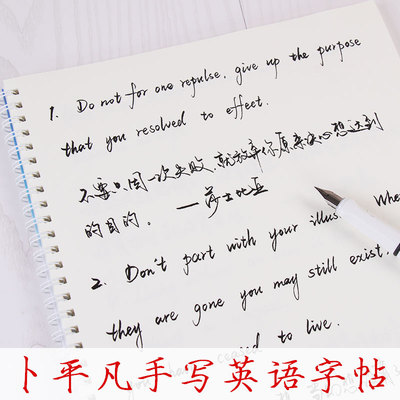 1. Do not for one repulse, give up the purpose
that you resolved to effect.
不要只因一次失败,就放弃你原来决心想达到
的目的。 —莎士比亚
2. Don't part with your illus Whe
they are gone you may still exist.
to live.
卜平凡手写英语字帖